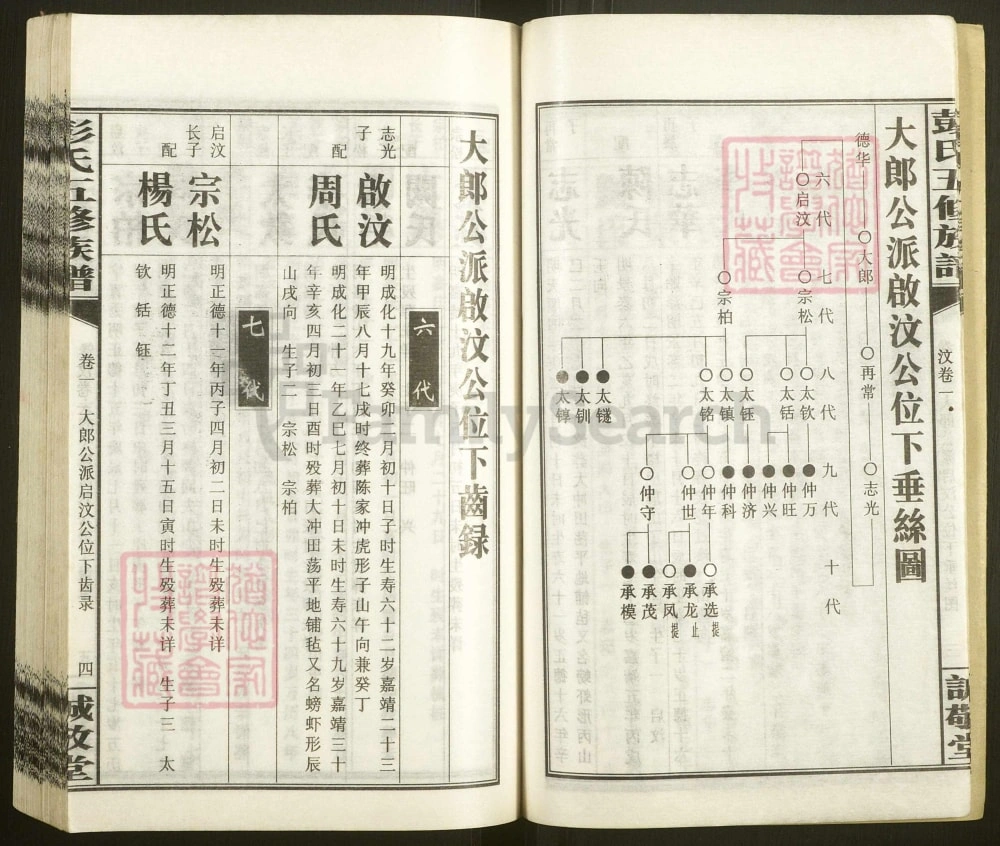 彭氏五修族譜
汶卷一
誠敬堂
大郎公派啟汶公位下垂絲圖
德华
大郎
再常
志光
六代
七代
八代
九代
十代
启汶
宗松
宗柏
太钦
太铦
太钰
太镇
太铭
太鐩
太钏
太錞
仲万
仲旺
仲兴
仲济
仲科
仲年
仲世
仲守
承选 提
承龙 止
承凤 提
承茂
承模
大郎公派啟汶公位下齒録
六代
志光子
啟汶
明成化十九年癸卯二月初十日子时生寿六十二岁嘉靖二十三
年甲辰八月十七戌时终葬陈家冲虎形子山午向兼癸丁
配
周氏
明成化二十一年乙巳七月初十日未时生寿六十九岁嘉靖三十
年辛亥四月初三日酉时殁葬大冲田荡平地铺毡又名螃虾形辰
山戌向 生子二 宗松 宗柏
七代
启汶长子
宗松
明正德十一年丙子四月初二日未时生殁葬未详
配
楊氏
明正德十二年丁丑三月十五日寅时生殁葬未详 生子三 太
钦 铦 钰
彭氏五修族譜
卷一
大郎公派启汶公位下齿录
四
誠敬堂
FamilySearch